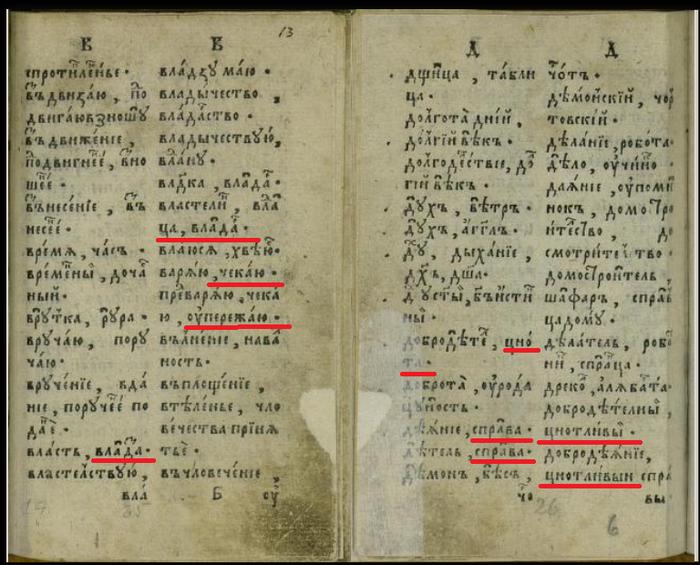 В В 13
спроти́ле́нье .
въдвиза́ю , по
двига́ювзношꙋ
въдвиже́нїе ,
подвигне́е , вно
шее .
вънесе́нїе , въ
несе́е .
вре́мѧ , ча́съ .
вре́мены , доча
ный .
врꙋ́тка , рꙋ́ра .
врꙋча́ю , порꙋ
ча́ю .
врꙋче́нїе , вда
нїе , порꙋче́е по
да́е .
вла́сть , вла́дза .
властелствꙋю ,
вла
вла́дзꙋмаю .
влады́чество ,
вла́дзство .
влады́чествꙋю ,
вла́нꙋ .
влдка , вла́дза .
властели , вла
ца , вла́дза .
влаюсѧ , хвѣю .
варѧ́ю , чека́ю .
преварѧ́ю , чека́
ю , оупережа́ю .
вълне́нїе , нава́
ность .
въплоще́нїе ,
втѣле́нье , чло
вечества прїнѧ
тье .
въчловече́нїе ,
Б сꙋ
Д Д
дщица , табли
ца .
долгота́ дні́й ,
до́лгїй вѣкъ .
долгоде́нствїе , до
гїй вѣкъ .
дꙋ́хъ , вѣ́тръ .
дꙋ́хъ , а́гглъ .
дꙋ , дыха́нїе ,
дхъ , дша .
ны .
добродѣте , цно́
та .
доброта , оуро́да
цꙋ́дность .
дѣѧ́нїе , спра́ва .
дѣ́тель , спра́ва .
де́монъ , бѣ́съ ,
чо
чо́тъ .
де́монскїй , чор
товскїй .
дѣ́ланїе , робо́та .
дѣ́ло , оучи́но .
даѧ́нїе , оупоми
нокъ , домостро
ителство , до
смотрителство .
домострои́тель
шафаръ , справ
цадо́мꙋ .
дѣ́латель , робо
ни , спра́вца .
древо , алѧба́та
добродѣ́телны ,
цнотли́вы .
добродѣѧ́нїе ,
цнотли́вын спра
вы
26
6